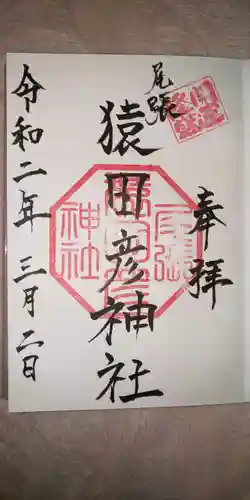 奉拝
尾張
猿田彦神社
令和二年三月二日
神社